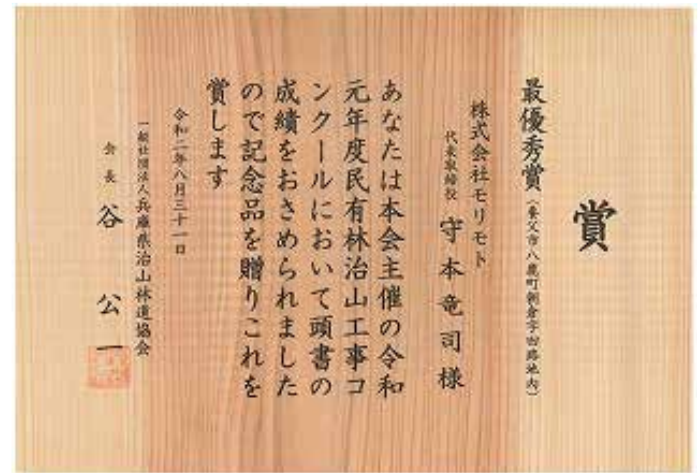 賞
最優秀賞(養父市八鹿町朝倉字田路池内)
株式会社モリモト
代表取締役 守本竜司様
あなたは本会主催の令和
元年度民有林治山工事コ
ンクールにおいて頭書の
成績をおさめられました
ので記念品を贈りこれを
賞します
令和二年八月三十一日
一般社団法人兵庫県治山林道協会
会長 谷公一